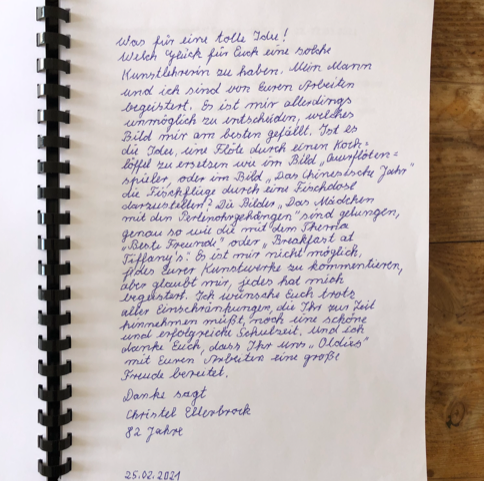 Was für eine tolle Idee!
Welch Glück für Euch eine solche
Kunstlehrerin zu haben. Mein Mann
und ich sind von Euren Arbeiten
begeistert. Es ist mir allerdings
unmöglich zu entscheiden, welches
Bild mir am besten gefällt. Ist es
die Idee, eine Flöte durch einen Koch=
löffel zu ersetzen wie im Bild „Querflöten=
spieler, oder im Bild „Das Chinesische Jahr"
die Fischflüge durch eine Fischdose
darzustellen? Die Bilder „Das Mädchen
mit den Perlenohrgehängen" sind gelungen,
genau so wie die mit dem Thema
„Beste Freunde" oder „Breakfast at
Tiffany's". Es ist mir nicht möglich,
jedes Eurer Kunstwerke zu kommentieren,
aber glaubt mir, jedes hat mich
begeistert. Ich wünsche Euch trotz
aller Einschränkungen, die Ihr zur Zeit
hinnehmen müßt, noch eine schöne
und erfolgreiche Schulzeit. Und ich
danke Euch, dass Ihr uns „Oldies"
mit Euren Arbeiten eine große
Freude bereitet.
Danke sagt
Christel Ellerbrock
82 Jahre
25.02.2021